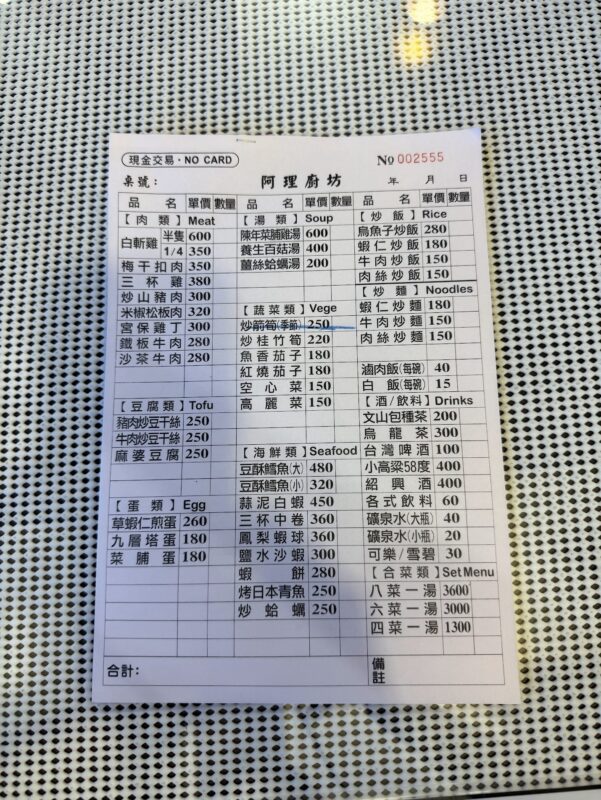 現金交易・NO CARD
No 002555
桌號:
阿理廚坊
年 月 日
品 名 單價 數量
【肉 類】Meat
白斬雞 半隻 600
1/4 350
梅干扣肉 350
三杯雞 380
炒山豬肉 300
米椒松板肉 320
宮保雞丁 300
鐵板牛肉 280
沙茶牛肉 280
【豆腐類】Tofu
豬肉炒豆干絲 250
牛肉炒豆干絲 250
麻婆豆腐 250
【蛋 類】Egg
草蝦仁煎蛋 260
九層塔蛋 180
菜脯蛋 180
品 名 單價 數量
【湯 類】Soup
陳年菜脯雞湯 600
養生百菇湯 400
薑絲蛤蠣湯 200
【蔬菜類】Vege
炒箭筍(季節) 250
炒桂竹筍 220
魚香茄子 180
紅燒茄子 180
空心菜 150
高麗菜 150
【海鮮類】Seafood
豆酥鱈魚(大) 480
豆酥鱈魚(小) 320
蒜泥白蝦 450
三杯中卷 360
鳳梨蝦球 360
鹽水沙蝦 300
蝦餅 280
烤日本青魚 250
炒蛤蠣 250
品 名 單價 數量
【炒飯】Rice
烏魚子炒飯 280
蝦仁炒飯 180
牛肉炒飯 150
肉絲炒飯 150
【炒麵】Noodles
蝦仁炒麵 180
牛肉炒麵 150
肉絲炒麵 150
滷肉飯(每碗) 40
白飯(每碗) 15
【酒/飲料】Drinks
文山包種茶 200
烏龍茶 300
台灣啤酒 100
小高粱58度 400
紹興酒 400
各式飲料 60
礦泉水(大瓶) 40
礦泉水(小瓶) 20
可樂/雪碧 30
【合菜類】Set Menu
八菜一湯 3600
六菜一湯 3000
四菜一湯 1300
合計:
備註